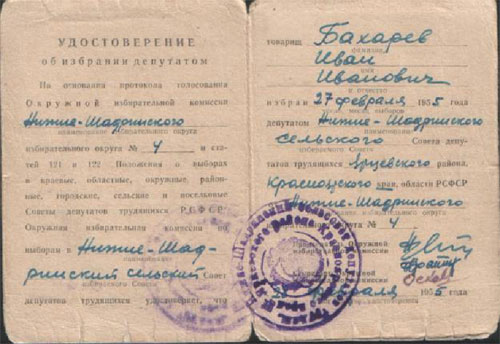 УДОСТОВЕРЕНИЕ
об избрании депутатом
На основании протокола голосования
Окружной избирательной комиссии
Нижне-Шадринского
наименование избирательного округа
избирательного округа № 4 и ста-
тей 121 и 122 Положения о выборах
в краевые, областные, окружные, район-
ные, городские, сельские и поселковые
Советы депутатов трудящихся РСФСР
Окружная избирательная комиссия
выборам в Нижне-Шад-
наименование
ринский сельский Совет
избираемого Совета
депутатов трудящихся удостоверяет, что
товарищ Бахарев
фамилия,
Иван
имя
Иванович
и отчество
избран 27 февраля 1955 года
число, месяц выборов
депутатом Нижне-Шадринского
наименование
сельского Совета депу-
избираемого Совета
татов трудящихся Ярцевского района,
Красноярского края, области РСФСР
Нижне-Шадринского
избирательного округа
округа № 4
Окружной
комиссии
комиссии
февраля 1955 года